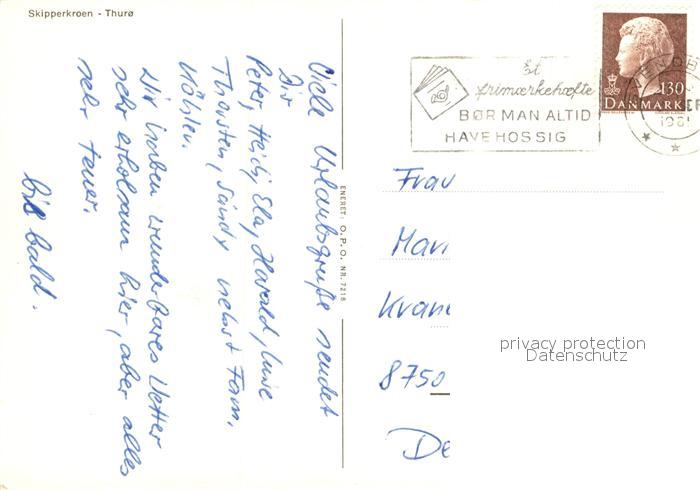 Skipperkroen - Thurø
Viele Urlaubsgrüße sendet
Dir
Peter, Heidi, Ela, Harald,
Thorsten, Sandy nebst Fam.
Köhler.
Wir haben wunderbares Wetter
sehr erholsam hier, aber alles
sehr teuer.
bis bald.
ENERET: O.P.O. NR. 7218
Et
frimærkehæfte
BØR MAN ALTID
HAVE HOS SIG
130
DANMARK
1981
Frau
8750
privacy protection
Datenschutz